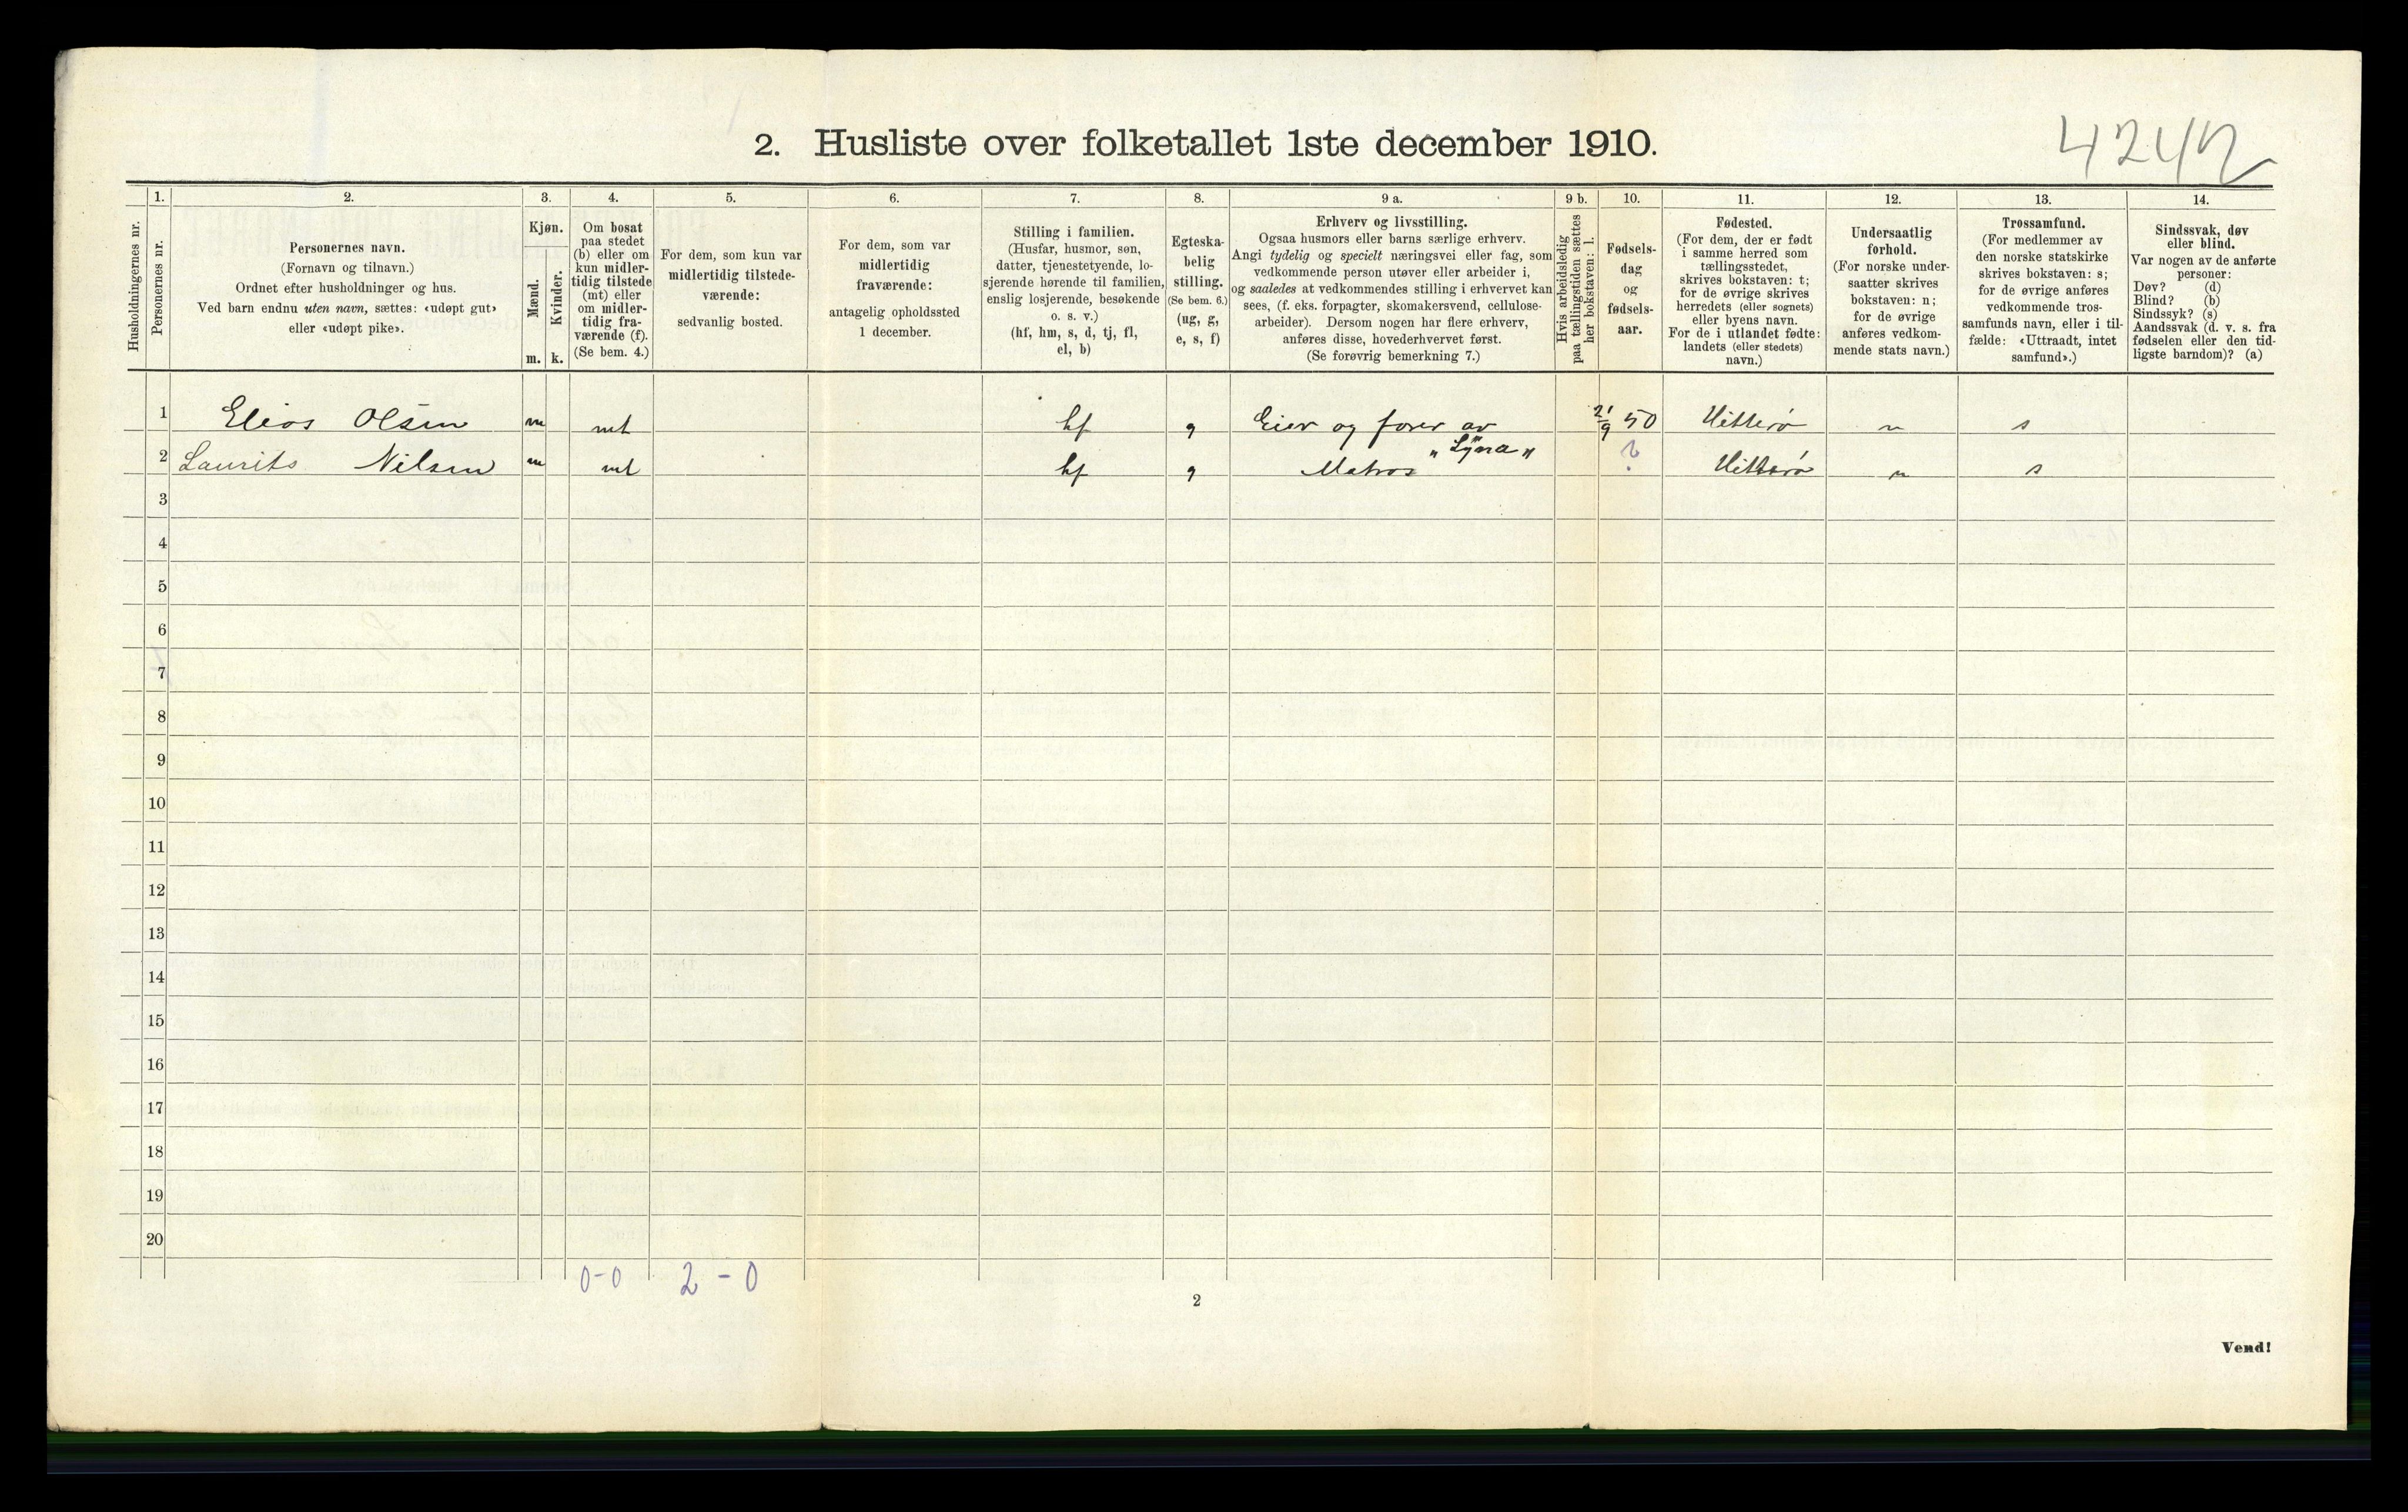 4242
2. Husliste over folketallet 1ste december 1910.
Husholdningernes nr.
1.
Personernes nr.
2.
Personernes navn.
(Fornavn og tilnavn.)
Ordnet efter husholdninger og hus.
Ved barn endnu uten navn, sættes: «udøpt gut»
eller «udøpt pike».
3.
Kjøn.
Mænd.
Kvinder.
m. k.
4.
Om bosat
paa stedet
(b) eller om
kun midler-
tidig tilstede
(mt) eller
om midler-
tidig fra-
værende (f).
(Se bem. 4.)
5.
For dem, som kun var
midlertidig tilstede-
værende:
sedvanlig bosted.
6.
For dem, som var
midlertidig
fraværende:
antagelig opholdssted
1 december.
7.
Stilling i familien.
(Husfar, husmor, søn,
datter, tjenestetyende, lo-
sjerende hørende til familien,
enslig losjerende, besøkende
o. s. v.)
(hf, hm, s, d, tj, fl,
el, b)
8.
Egteska-
belig
stilling.
(Se bem. 6.)
(ug, g,
e, s, f)
9 a.
Erhverv og livsstilling.
Ogsaa husmors eller barns særlige erhverv.
Angi tydelig og specielt næringsvei eller fag, som
vedkommende person utøver eller arbeider i,
og saaledes at vedkommendes stilling i erhvervet kan
sees, (f. eks. forpagter, skomakersvend, cellulose-
arbeider). Dersom nogen har flere erhverv,
anføres disse, hovederhvervet først.
(Se forøvrig bemerkning 7.)
9 b.
Hvis arbeidsledig
paa tællingstiden sættes
her bokstaven: l.
10.
Fødsels-
dag
og
fødsels-
aar.
11.
Fødested.
(For dem, der er født
i samme herred som
tællingsstedet,
skrives bokstaven: t;
for de øvrige skrives
herredets (eller sognets)
eller byens navn.
For de i utlandet fødte:
landets (eller stedets)
navn.)
12.
Undersaatlig
forhold.
(For norske under-
saatter skrives
bokstaven: n;
for de øvrige
anføres vedkom-
mende stats navn.)
13.
Trossamfund.
(For medlemmer av
den norske statskirke
skrives bokstaven: s;
for de øvrige anføres
vedkommende tros-
samfunds navn, eller i til-
fælde: «Uttraadt, intet
samfund».)
14.
Sindssvak, døv
eller blind.
Var nogen av de anførte
personer:
Døv? (d)
Blind? (b)
Sindssyk? (s)
Aandssvak (d. v. s. fra
fødselen eller den tid-
ligste barndom)? (a)
1 Elias Olsen m mt hf g Eier og fører av 21/9 50 Hitterø n s
"Lyna"
2 Laurits Nilsen m mt hf g Matros ? Hitterø n s
3
4
5
6
7
8
9
10
11
12
13
14
15
16
17
18
19
20
0-0 2-0
2
Vend!